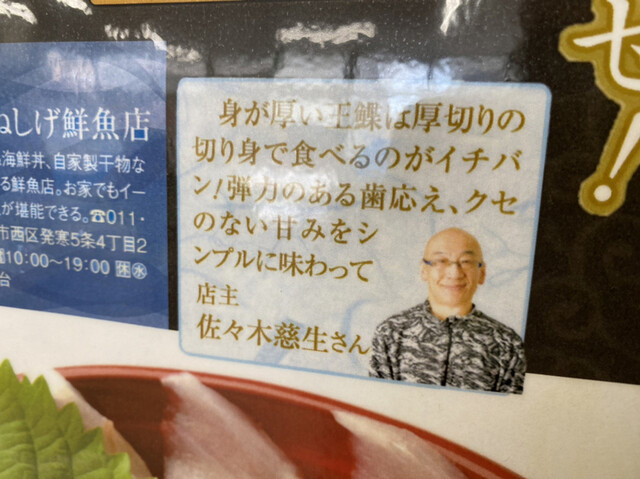 ねしげ鮮魚店
海鮮丼、自家製干物な
る鮮魚店。お家でもイー
が堪能できる。☎011・
市西区発寒5条4丁目2
10:00〜19:00 困水
台
身が厚い王鰈は厚切りの
切り身で食べるのがイチバ
ン!弾力のある歯応え、クセ
のない甘みをシ
ンプルに味わって
店主
佐々木慈生さん
ゼ!